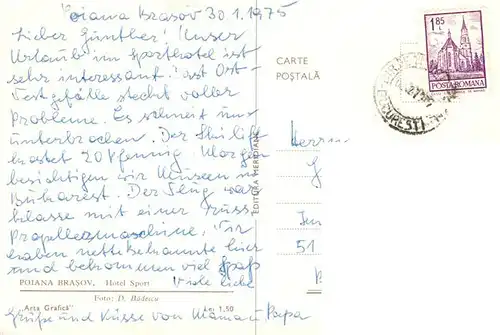 Poiana Brasov 30.1.1975
Lieber Günther! Unser
Urlaub im Sporthotel ist
sehr interessant! Ost-
Westgefälle steckt voller
Probleme. Es schneit un-
unterbrochen. Der Skilift
kostet 20 Pfennig. Morgen
besichtigen wir Museen in
Bukarest. Der Flug war
klasse mit einer russ.
Propellermaschine. Wir
haben nette Bekannte hier
und bekommen viel Spaß
Viele liebe
Grüße und Küsse von Mama u. Papa
POIANA BRAŞOV, Hotel Sport
Foto: D. Bădescu
"Arta Grafică"
Lei 1,50
EDITURA MERIDIANE
CARTE
POŞTALĂ
1,85
L
POSTA ROMANA
BUCUREŞTI
Herrn
51